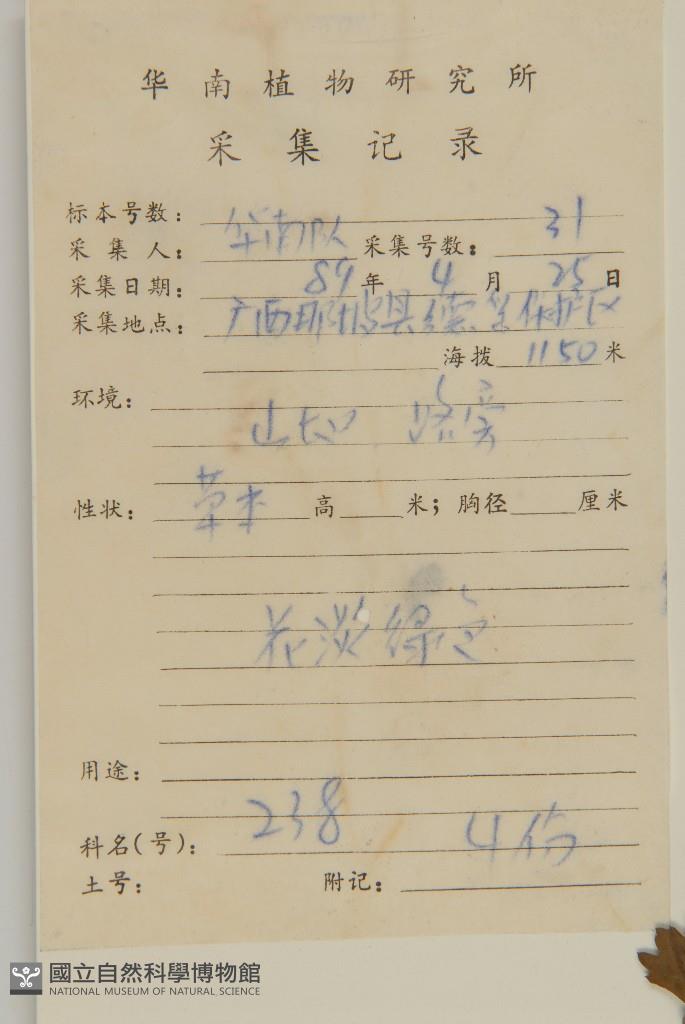 华南植物研究所
采集记录
标本号数：
采集人： 华南队 采集号数： 31
采集日期： 89 年 4 月 25 日
采集地点： 广西那坡县德孚保护区
海拨 1150 米
环境：
山
性状： 草本 高 米；胸径 厘米
花淡绿色
用途：
科名(号)： 238 4份
土号： 附记：
國立自然科學博物館
NATIONAL MUSEUM OF NATURAL SCIENCE